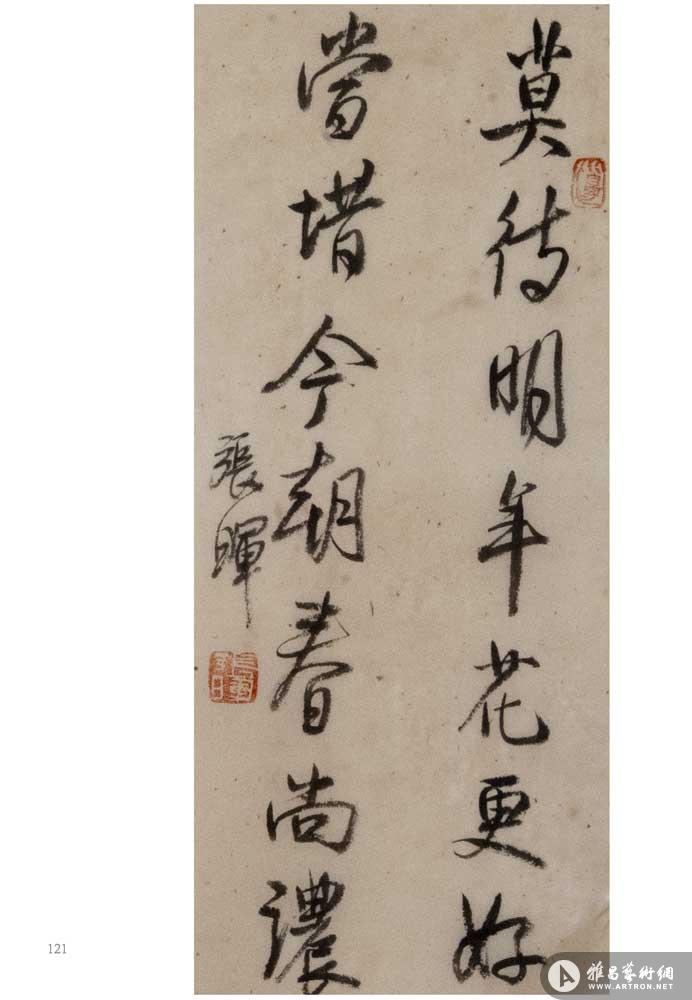 莫待明年花更好
當惜今朝春尚濃
張暉
121
雅昌藝術網
WWW.ARTRON.NET